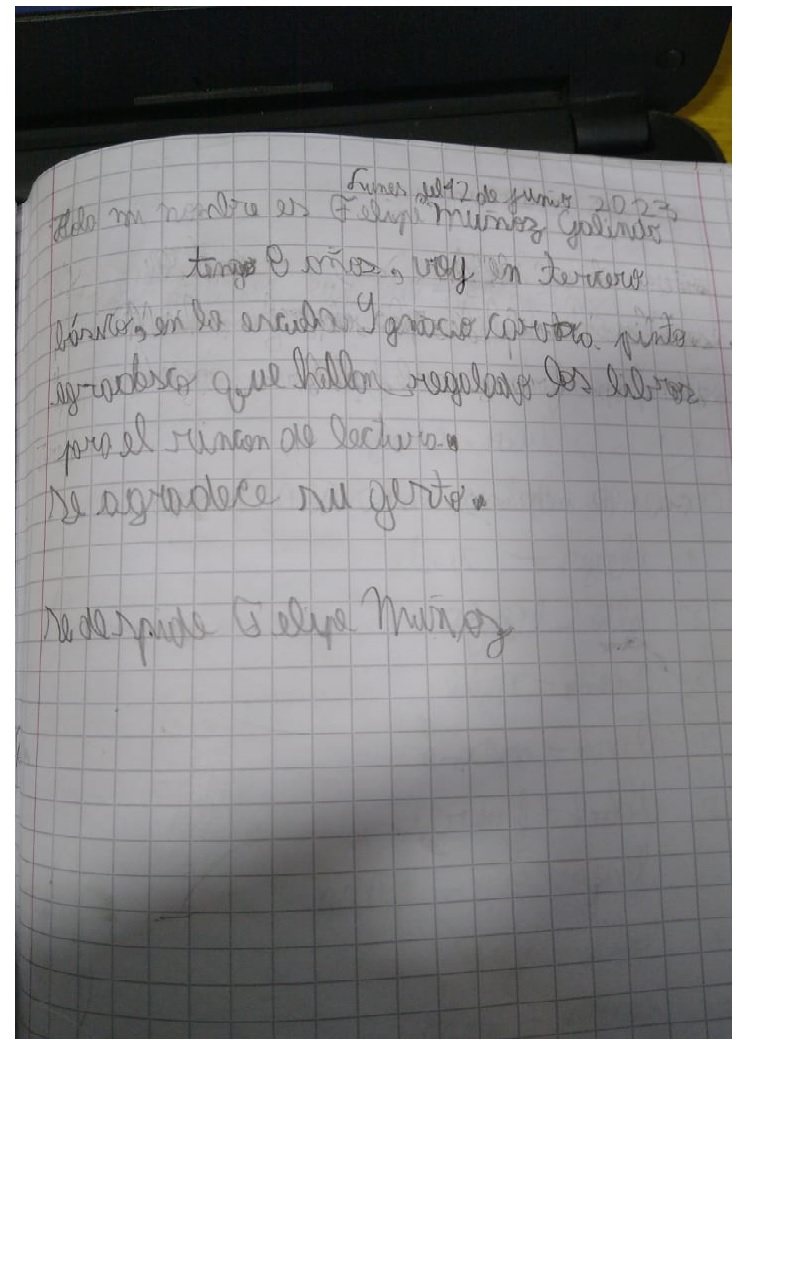 Lunes del 12 de junio 2023
Hola mi nombre es Felipe Muñoz Galindo
tengo 8 años, voy en tercero
básico, en la escuela Ygnacio Carrera pinto
agradesco que hallan regalado los libros
para el rincon de lectura.
se agradece su gesto.
se despide Felipe Muñoz